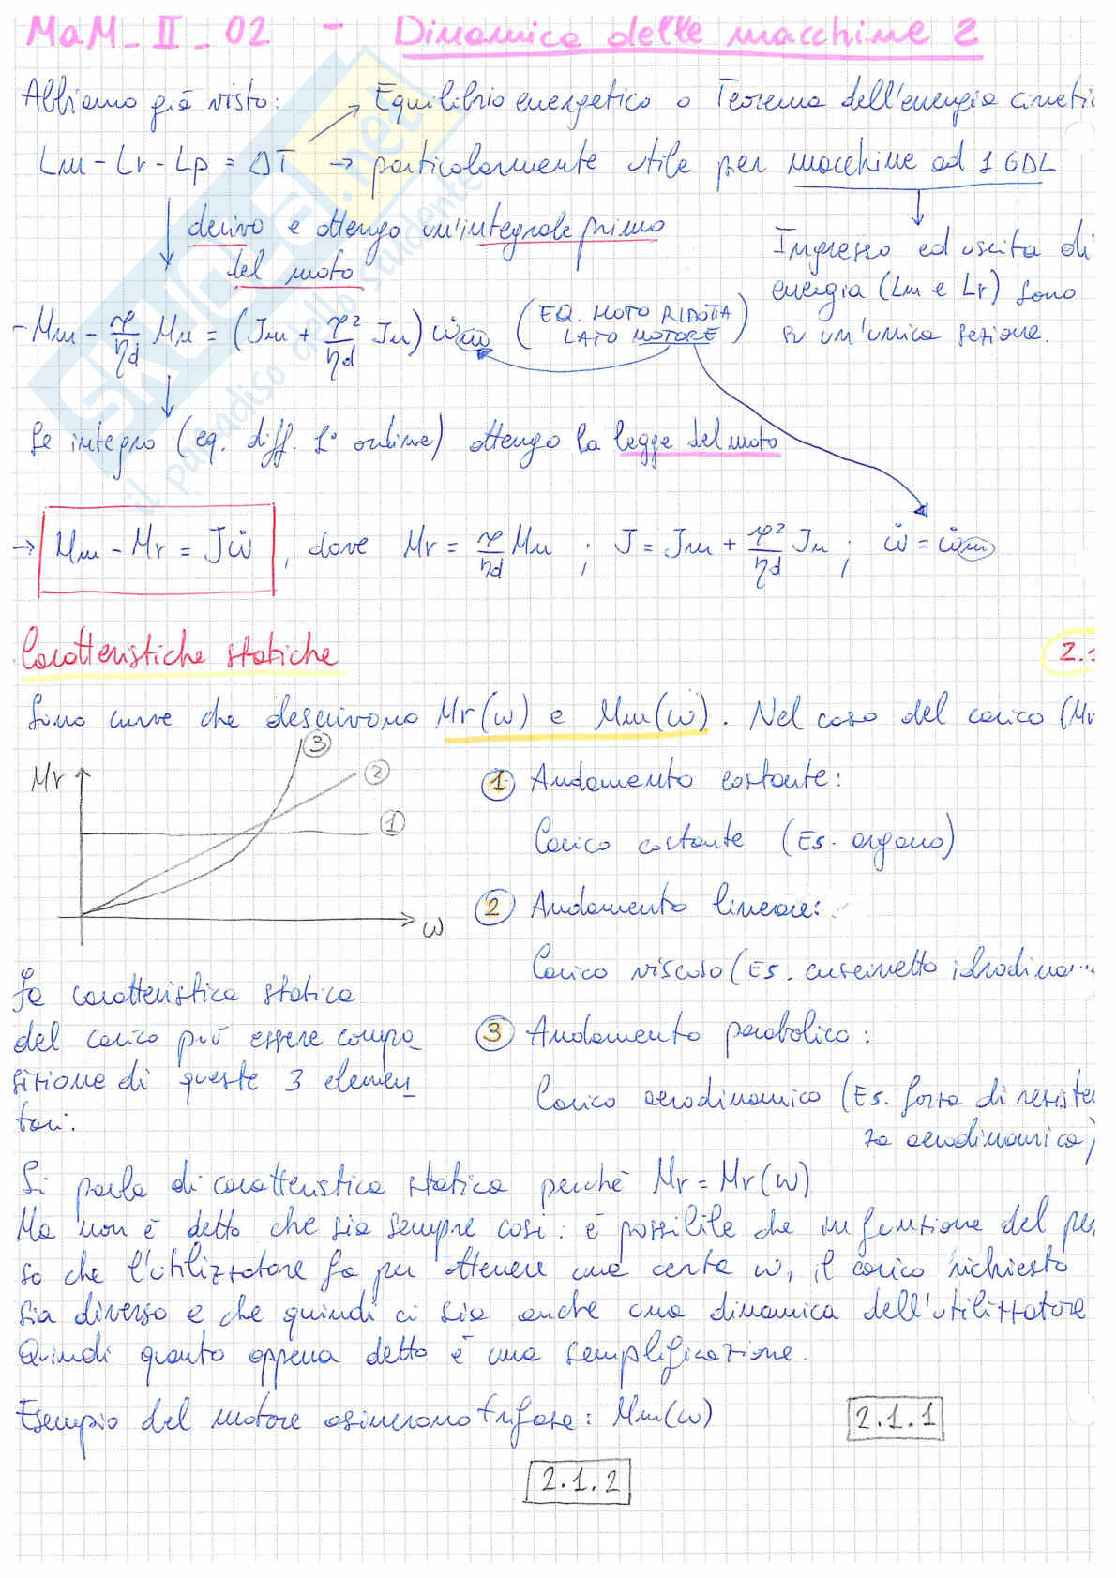 MaM_II_02 - Dinamica delle macchine 2
Abbiamo già visto: → Equilibrio energetico o Teorema dell'energia cineti
Lm - Lr - Lp = ΔT → particolarmente utile per macchine ad 1 GDL
↓ derivo e ottengo un'integrale primo
del moto
Ingresso ed uscita di
energia (Lm e Lr) sono
su un'unica sezione.
- Mm - τ/ηd Mu = (Jm + τ²/ηd Ju) ω̇m (EQ. MOTO RIDOTTA
LATO MOTORE)
Se integro (eq. diff. 1° ordine) ottengo la legge del moto
→ Mm - Mr = Jω̇, dove Mr = τ/ηd Mu ; J = Jm + τ²/ηd Ju ; ω̇ = ω̇m
Caratteristiche statiche
2.1
Sono curve che descrivono Mr(ω) e Mm(ω). Nel caso del carico (Mr
Mr
③
②
①
ω
① Andamento costante:
Carico costante (Es. argano)
② Andamento lineare:
Carico viscoso (Es. cuscinetto idrodina...
③ Andamento parabolico:
Carico aerodinamico (Es. forza di resisten
za aerodinamica)
La caratteristica statica
del carico può essere compo_
sizione di queste 3 elemen_
tari.
Si parla di caratteristica statica perché Mr = Mr(ω)
Ma non è detto che sia sempre così: è possibile che in funzione del per
so che l'utilizzatore fa per ottenere una certa ω, il carico richiesto
sia diverso e che quindi ci sia anche una dinamica dell'utilizzatore
Quindi quanto appena detto è una semplificazione.
Esempio del motore asincrono trifase: Mm(ω) 2.1.1
2.1.2